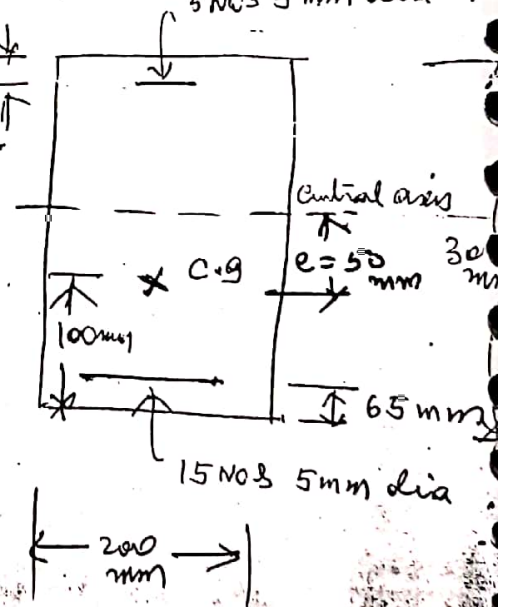 5 NOS 5 mm
central axis
e = 50 mm
30
C.g
100mm
65 mm
15 NOS 5mm dia
200 mm